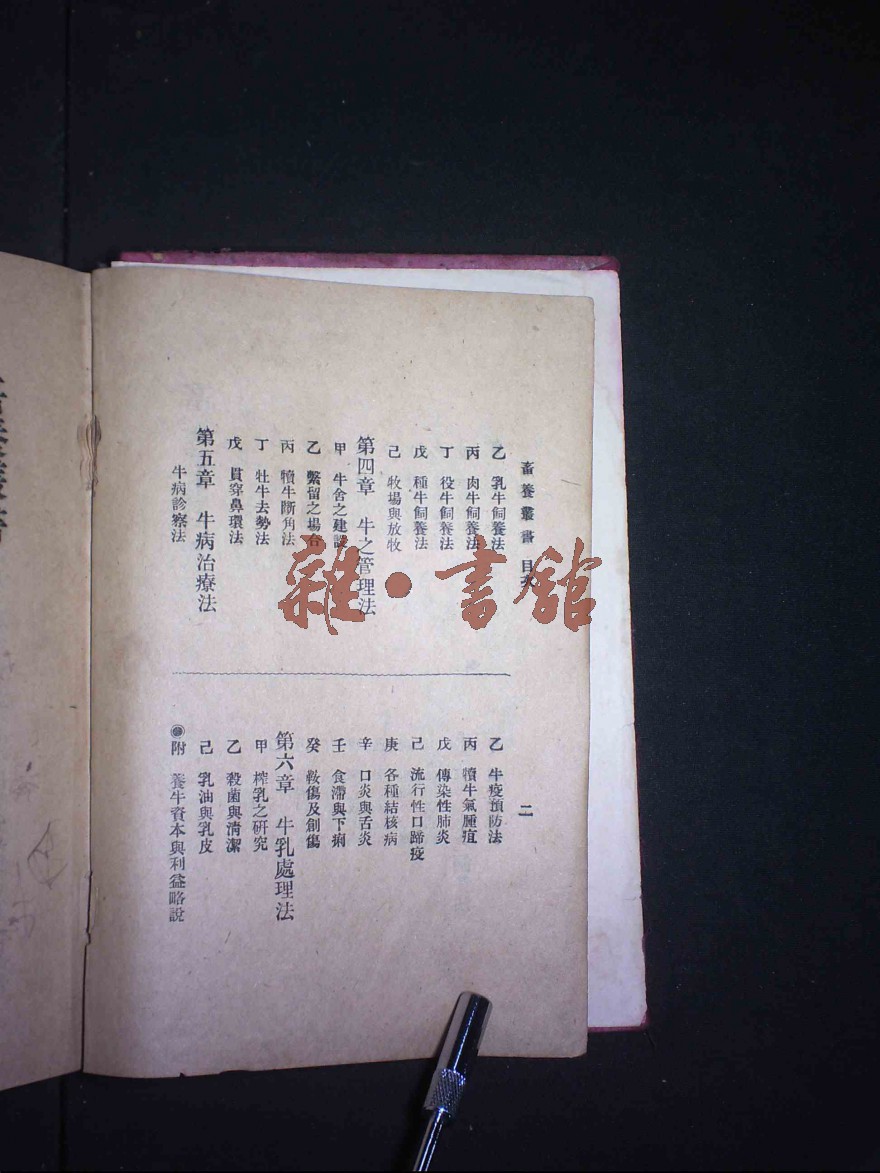 畜養叢書 目次
乙 乳牛飼養法
丙 肉牛飼養法
丁 役牛飼養法
戊 種牛飼養法
己 牧場與放牧
第四章 牛之管理法
甲 牛舍之建設
乙 繫留之場合
丙 犢牛斷角法
丁 牡牛去勢法
戊 貫穿鼻環法
第五章 牛病治療法
牛病診察法
二
乙 牛疫預防法
丙 犢牛氣腫疽
戊 傳染性肺炎
己 流行性口蹄疫
庚 各種結核病
辛 口炎與舌炎
壬 食滯與下痢
癸 鞍傷及創傷
第六章 牛乳處理法
甲 榨乳之研究
乙 殺菌與清潔
己 乳油與乳皮
附 養牛資本與利益略說
雜·書館